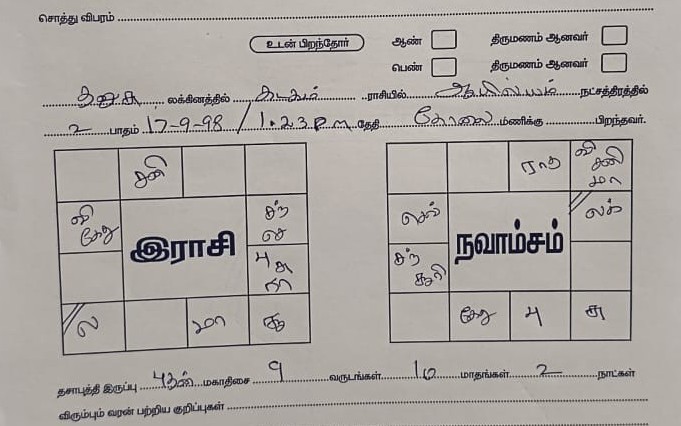 சொத்து விபரம்
உடன் பிறந்தோர் ஆண் திருமணம் ஆனவர்
பெண் திருமணம் ஆனவர்
தனுசு லக்கினத்தில் கடகம் ராசியில் ஆயில்யம் நட்சத்திரத்தில்
2 பாதம் 17-9-98 / 1.23 P.m தேதி மணிக்கு பிறந்தவர்.
சனி ராகு வி சனி மா
வி கேது சந் செ செவ் லக்
இராசி நவாம்சம்
பு சு ரா சந் சூரி
ல மா சூ கேது பு சு
தசாபுத்தி இருப்பு புதன் மகாதிசை 9 வருடங்கள் 10 மாதங்கள் 2 நாட்கள்
விரும்பும் வரன் பற்றிய குறிப்புகள்